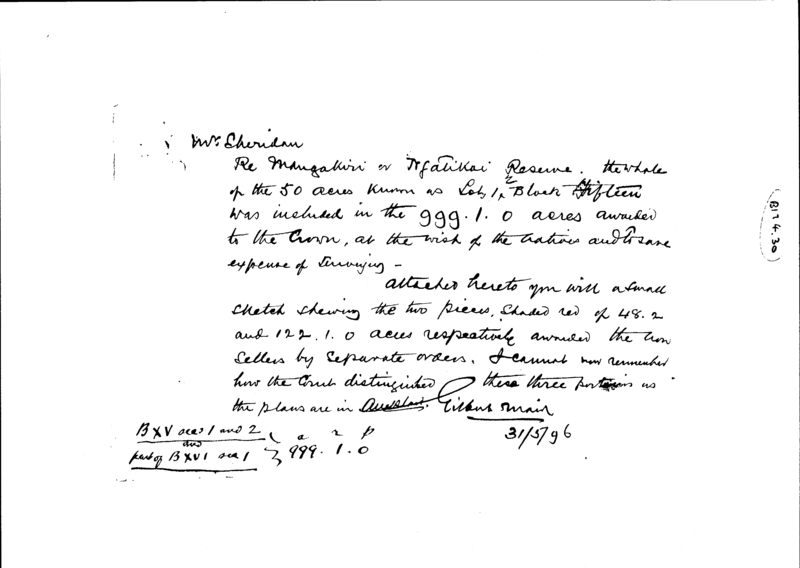 Mr. Sheridan
Re Mangakiri or Ngatikai Reserve. the whole
of the 50 acres known as Lot 1, Block Fifteen
was included in the 999.1.0 acres awarded
to the Crown, at the wish of the natives and to save
expense of Surveying —
attached hereto you will a small
sketch shewing the two pieces, shaded red of 48.2
and 122.1.0 acres respectively awarded the non
sellers by separate orders. I cannot now remember
how the Court distinguished these three portions as
the plans are in Auckland. Gilbert Mair
31/5/96
BXV secs 1 and 2
and
part of BXVI sec 1
a r p
999.1.0
(B17 4.30)